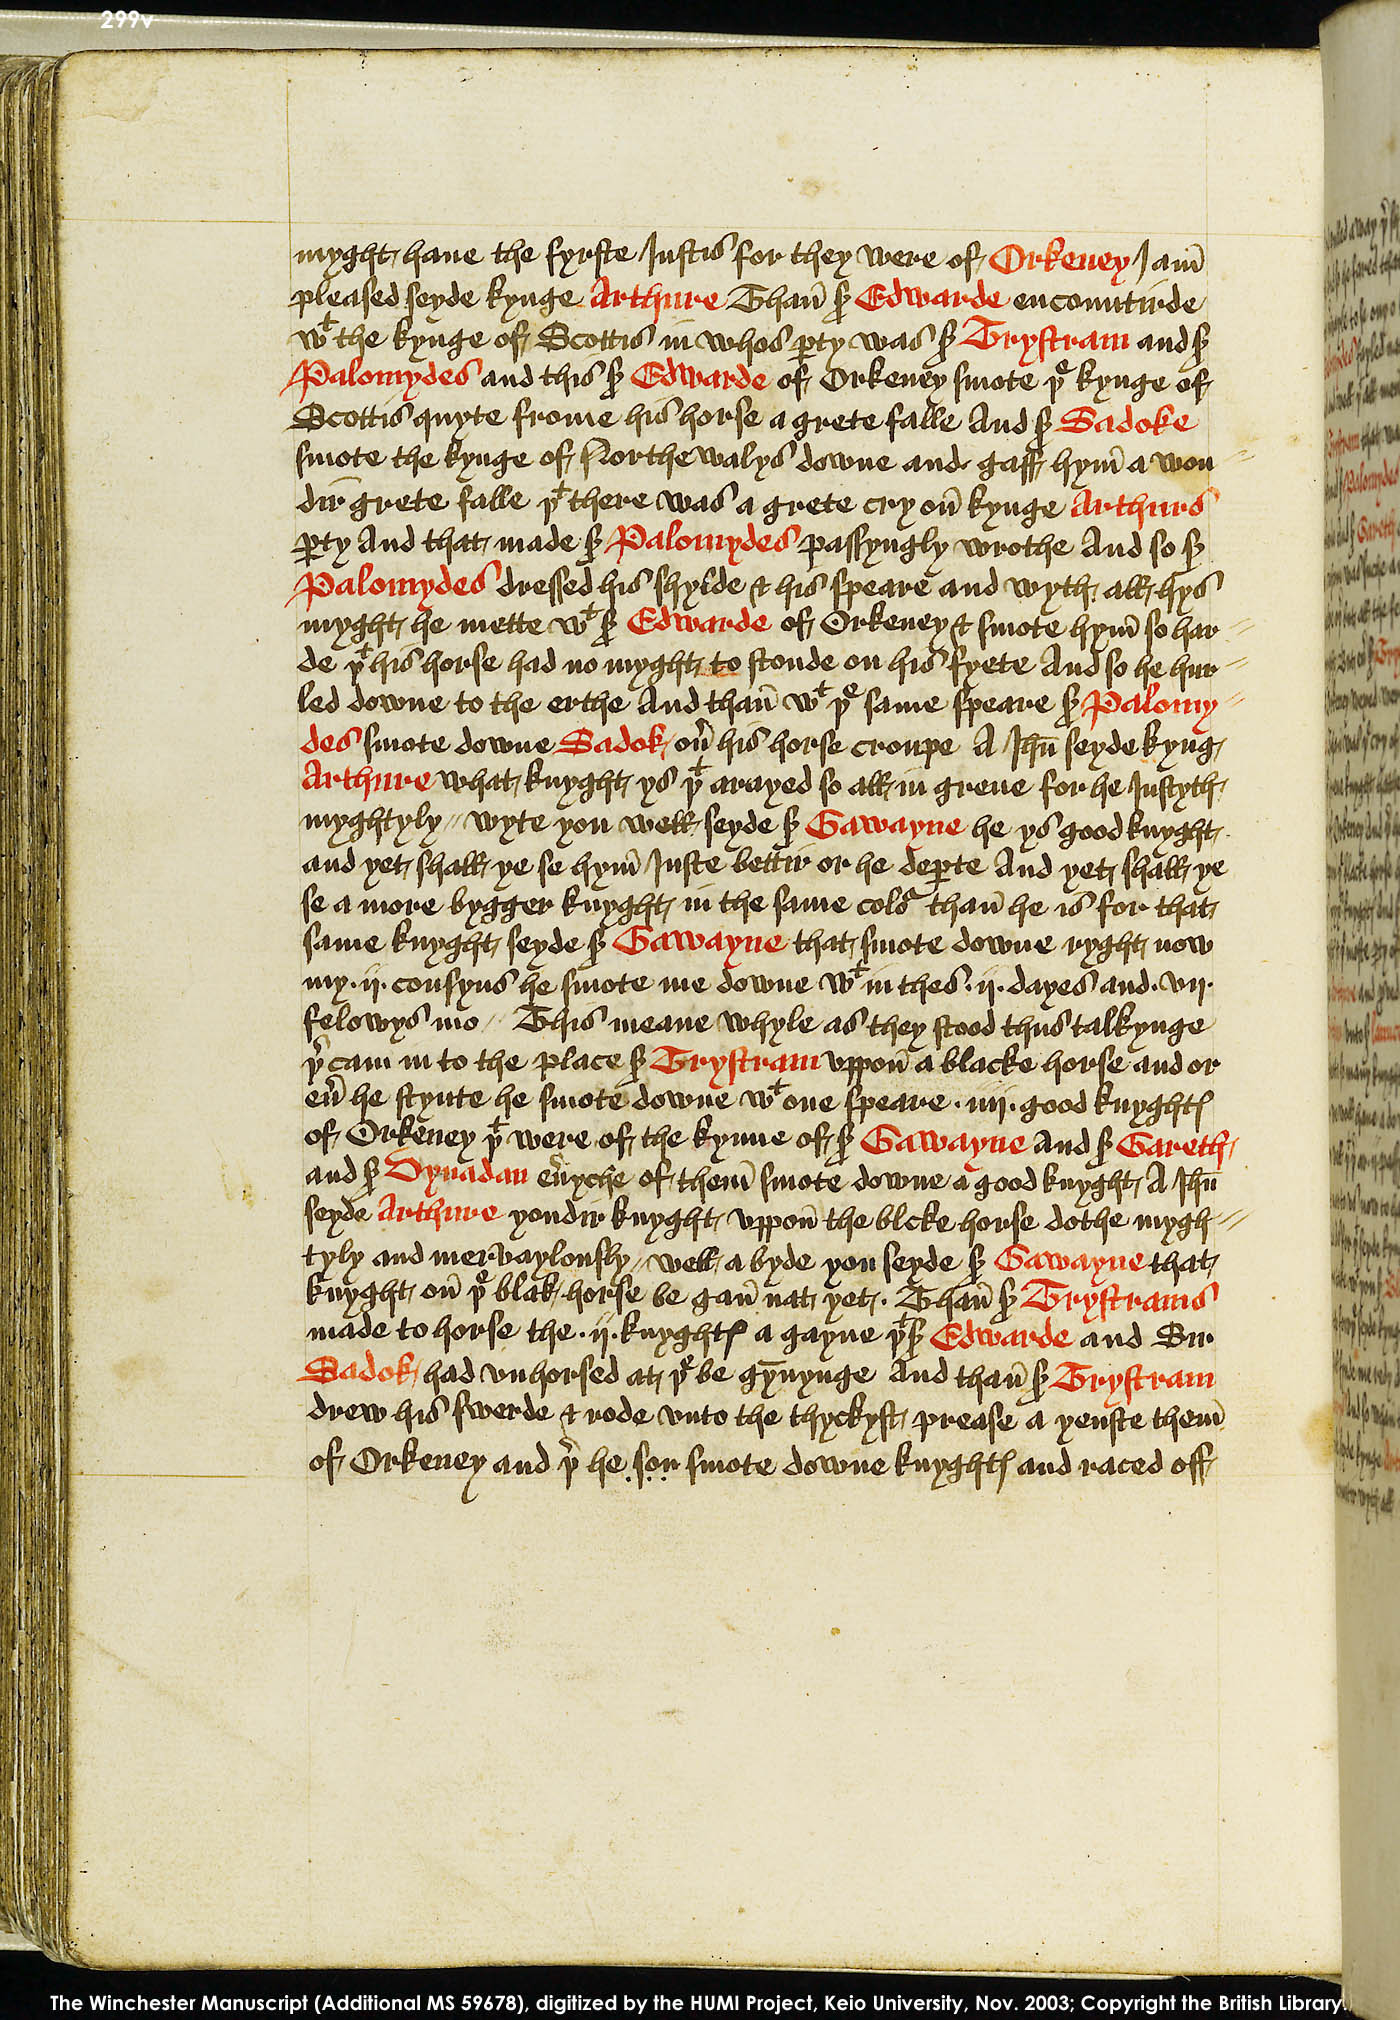 299v
myght haue the fyrste Iustis for they were of Orkeney I am̄
pleased seyde kynge Arthure Than̄ sʳ Edwarde encountirde
wᵗ the kynge of Scottis in whos ꝑty was sʳ Trystram and sʳ
Palomydes and this sʳ Edwarde of Orkeney smote þᵉ kynge of
Scottis quyte frome his horse a grete falle And sʳ Sadoke
smote the kynge of Northewalys downe and gaff hym̄ a won
dir grete falle þᵗ there was a grete cry on̄ kynge Arthurs
ꝑty And that made sʳ Palomydes passyngly wrothe And so sʳ
Palomydes dressed his shylde & his speare and wyth all hys
myght he mette wᵗ sʳ Edwarde of Orkeney & smote hym̄ so har
de þᵗ his horse had no myght to stonde on his fyete And so he hur
led downe to the erthe And than̄ wᵗ þᵉ same speare sʳ Palomy
des smote downe Sadok ou͛ his horse croupe A Ihū seyde kyng
Arthure what knyght ys þᵗ arayed so all in grene for he Iustyth
myghtyly // wyte you well seyde sʳ Gawayne he ys good knyght
and yet shall ye se hym̄ Iuste bettir or he deꝑte And yet shall ye
se a more bygger knyght in the same coloʳ than̄ he is for that
same knyght seyde sʳ Gawayne that smote downe ryght now
my · ij · cousyns he smote me downe wᵗ in thes · ij · dayes and · vij ·
felowys mo // This meane whyle as they stood thus talkynge
þʳ cam in to the place sʳ Trystram vppon̄ a blacke horse and or
eu͛ he stynte he smote downe wᵗ one speare · iiij · good knyghtꝭ
of Orkeney þᵗ were of the kynne of sʳ Gawayne And sʳ Gareth
and sʳ Dynadan eu͛yche of them̄ smote downe a good knyght A Ihū
seyde Arthure yondir knyght vppon̄ the blcke horse dothe mygh
tyly and mervaylously // well a byde you seyde sʳ Gawayne that
knyght on̄ þᵉ blak horse be gan̄ nat yet · Than̄ sʳ Trystrams
made to horse the · ij · knyghtꝭ a gayne þᵗ sʳ Edwarde and Sir
Sadok had vnhorsed at þᵉ be gȳnynge And than̄ sʳ Trystram
drew his swerde & rode vnto the thyckyst prease a yenste them̄
of Orkeney and þʳ he son smote downe knyghtꝭ and raced off
The Winchester Manuscript (Additional MS 59678), digitized by the HUMI Project, Keio University, Nov. 2003; Copyright the British Library.